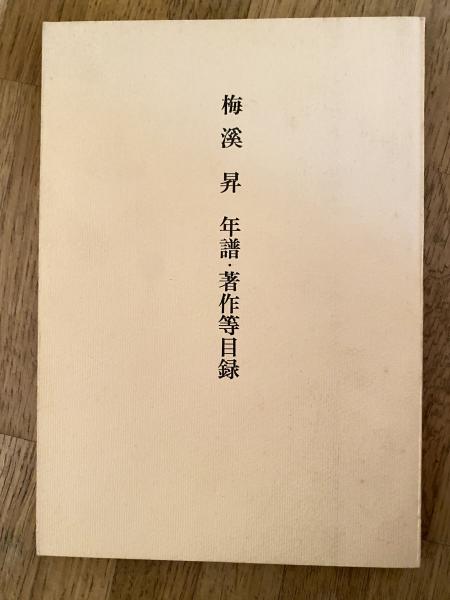 梅溪昇 年譜・著作等目録